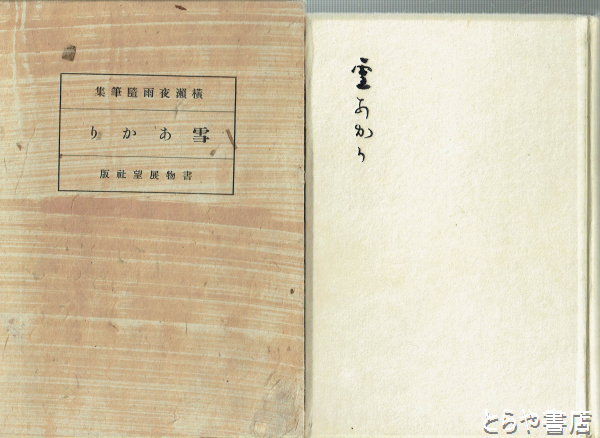 横瀬夜雨隨筆集
雪あかり
書物展望社版
雪あかり
とらや書店